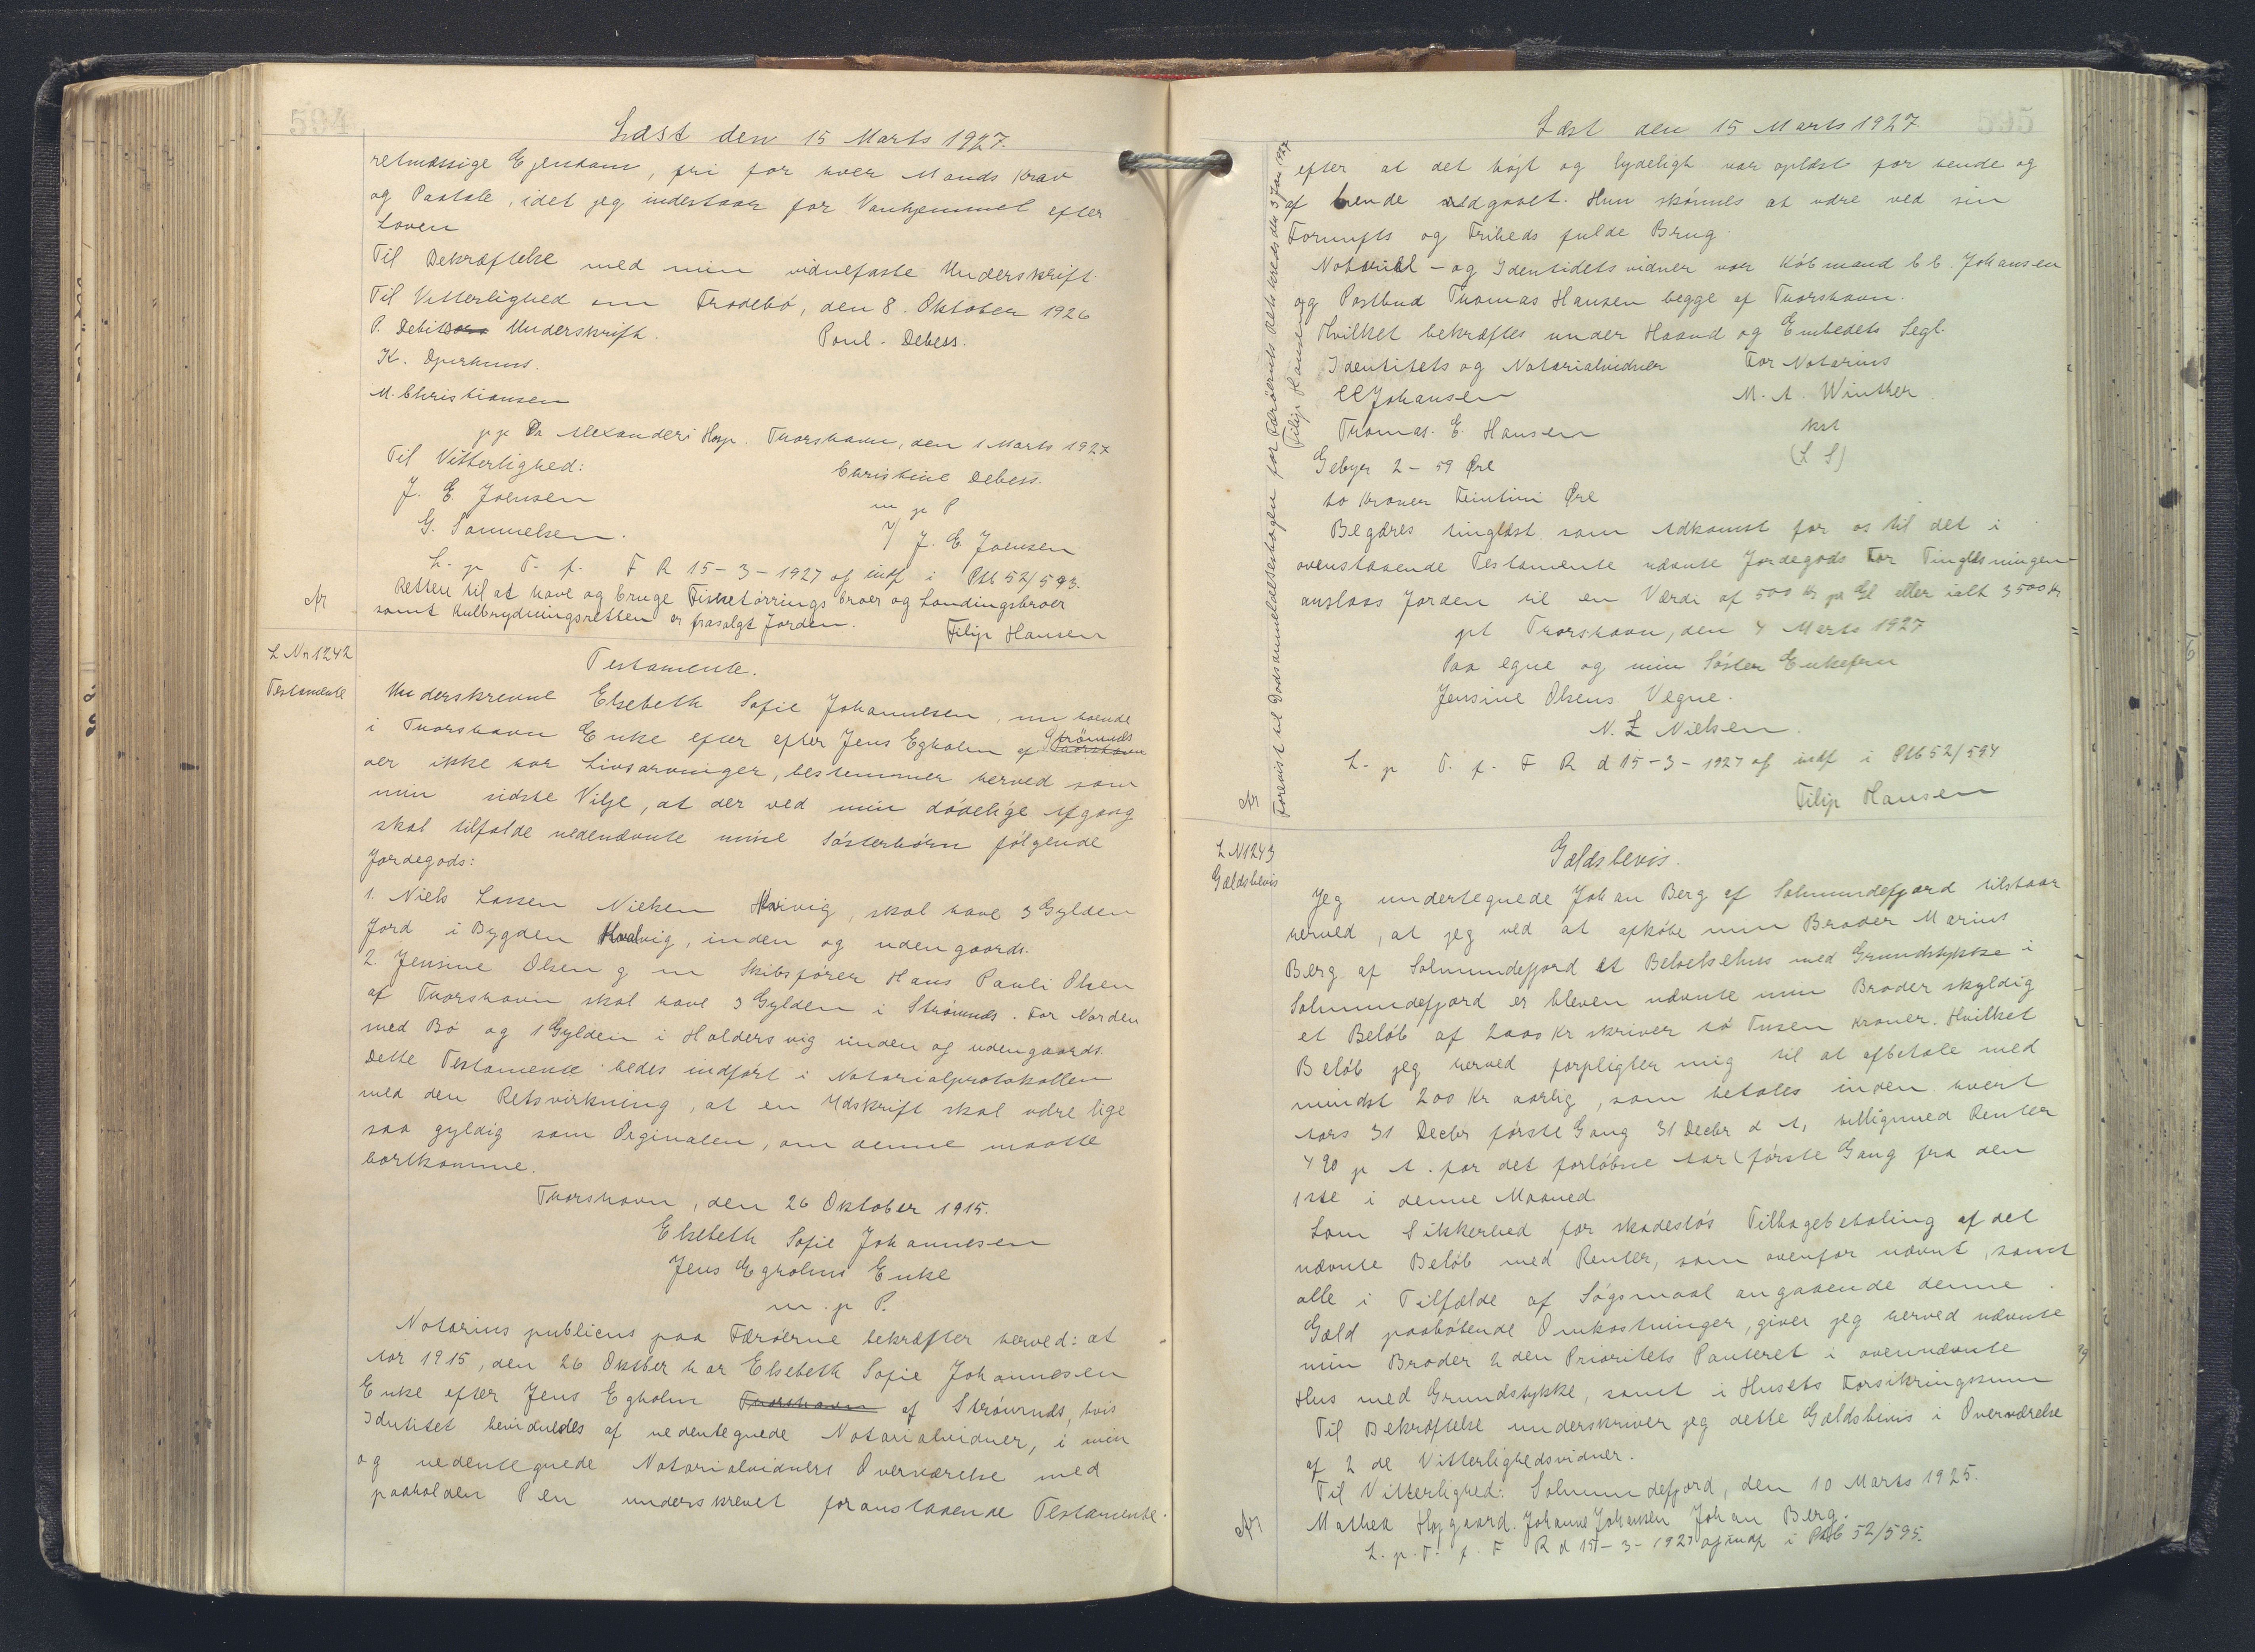 594
Læst den 15 Marts 1927.
retmæssige Ejendom, fri for hver Mands Krav
og Paatale, idet jeg indestaar for Vanhjemmel efter
Loven
Til Bekræftelse med min vidnefaste Underskrift.
Til Vitterlighed om Frodebø, den 8. Oktober 1926
P. Debitors Underskrift. Poul. Debess.
K. Djurhuus.
M. Christiansen
p p Dr Alexandri Hosp. Thorshavn, den 1 Marts 1927
Til Vitterlighed: Christine Debess.
J. E. Joensen m p P
G. Samuelsen. v/ J. E. Joensen
L. p T. f. F R 15-3-1927 og indf i Ptb 52/593.
Retten til at have og bruge Fisketørringsbroer og Landingsbroer
samt Kulbrydningsretten er frasolgt Jorden.
Filip Hansen
L Nr 1242
Testamente
Testamente.
Underskrevne Elsebeth Sofie Johannesen, nu boende
i Thorshavn Enke efter efter Jens Egholm af Thorshavn Strømnæs
der ikke har Livsarvinger, bestemmer herved som
min sidste Vilje, at der ved min dødelige Afgang
skal tilfalde nedennævnte mine Søsterbørn følgende
Jordegods:
1. Niels Lassen Nielsen Hvivig, skal have 3 Gylden
Jord i Bygden Kvalvig, inden og uden gaards.
2. Jensine Olsen g m Skibsfører Hans Pauli Olsen
af Thorshavn skal have 3 Gylden i Strømnæs. For Norden
med Bø og 1 Gylden i Haldersvig inden og udengaards.
Dette Testamente bedes indført i Notarialprotokollen
med den Retsvirkning, at en Udskrift skal være lige
saa gyldig som Orginalen, om denne maatte
bortkomme.
Thorshavn, den 26 Oktober 1915.
Elsebeth Sofie Johannesen
Jens Egholms Enke
m. p P.
Notarius publicus paa Færøerne bekræfter herved: at
Aar 1915, den 26 Oktber har Elsebeth Sofie Johannesen
Enke efter Jens Egholm Thorshavn af Strømnæs, hvis
Idntitet bevidnedes af nedentegnede Notarialvidner, i min
og nedentegnede Notarialvidners Overværelse med
paaholden Pen underskrevet foranstaaende Testamente.
595
Læst den 15 Marts 1927
efter at det højt og lydeligt var oplæst for hende og
af hende vedgaaet. Hun skønnes at være ved sin
Fornufts og Friheds fulde Brug.
Notarial- og Identidets vidner var Købmand C C. Johansen
og Postbud Thomas Hansen begge af Thorshavn.
Hvilket bekræftes under Haand og Embedets Segl.
Identitets og Notarialvidner For Notarius
CC Johansen M. A. Winther
Thomas. E. Hansen kst
Gebyr 2 - 59 Øre (L S)
to Kroner Femtini Øre
Begæres tinglæst som Adkomst for os til det i
ovenstaaende Testamente nævnte Jordegods For Tinglæsningen
anslaas Jorden til en Værdi af 500 Kr pr Gl eller ialt 3500 Kr
pt Thorshavn, den 4 Marts 1927
Paa egne og min Søster Enkefru
Jensine Olsens Vegne.
N. L Nielsen.
L. p T. f. F R d 15-3-1927 og indf i Ptb 52/594
Filip Hansen
Forevist til Dødsanmeldelsesbogen for Færøernes Retskreds den 3 Jan 1927
Filip Hansen
L N 1243
Gældsbevis
Gældsbevis.
Jeg undertegnede Johan Berg af Solmundefjord tilstaar
herved, at jeg ved at afkøbe min Broder Marius
Berg af Solmundefjord et Beboelsehus med Grundstykke i
Solmundefjord er bleven nævnte min Broder skyldig
et Beløb af 2000 Kr skriver to Tusen Kroner. Hvilket
Beløb jeg herved forpligter mig til at afbetale med
mindst 200 Kr aarlig, som betales inden hvert
Aars 31 Decbr første Gang 31 Decbr d A, tilligmed Renter
4 % p A. for det forløbne Aar (første Gang fra den
1ste i denne Maaned
Som Sikkerhed for skadesløs Tilbagebetaling af det
nævnte Beløb med Renter, som ovenfor nævnt, samt
alle i Tilfælde af Søgsmaal angaaende denne
Gæld paaløbende Omkostninger, giver jeg herved nævnte
min Broder 2den Prioritets Panteret i ovennævnte
Hus med Grundstykke, samt i Husets Forsikringssum
Til Bekræftelse underskriver jeg dette Gældsbevis i Overværelse
af 2 de Vitterlighedsvidner.
Til Vitterlighed: Solmundefjord, den 10 Marts 1925.
Mathea Højgaard. Johanne Johansen Johan Berg.
L. p. T. f. F R d 15-3-1927 og indf i Ptb 52/595.